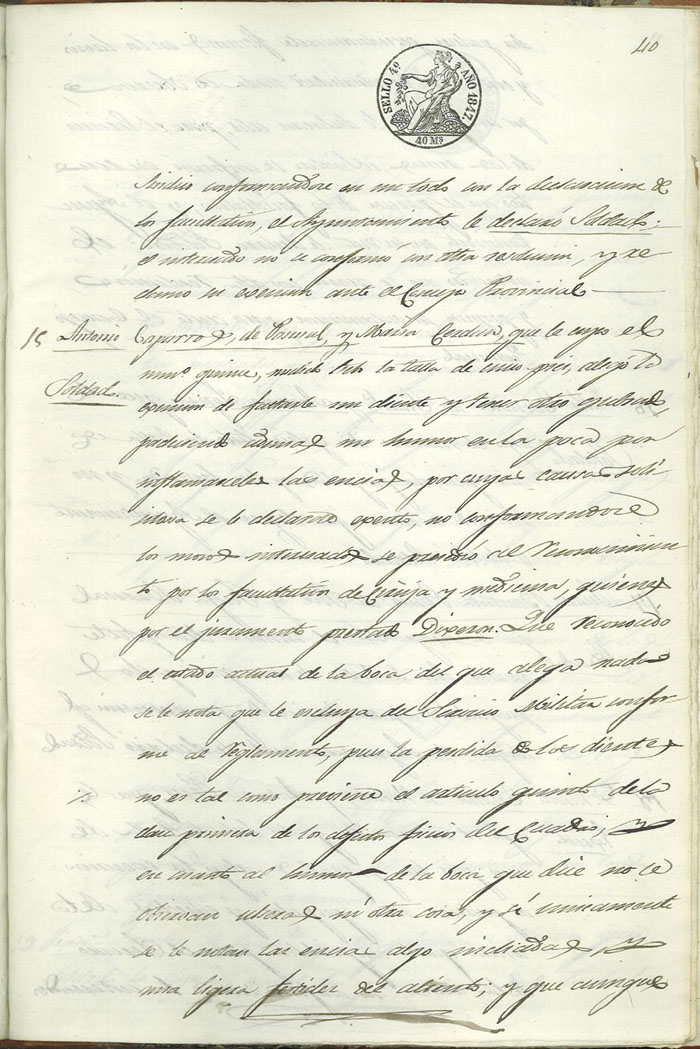 40
SELLO 4º AÑO 1847.
40 Ms
Sindico conformandose en un todo con la declaracion de
los facultativos, el Ayuntamiento le declaró Soldado:
el interesado no se conformó con esta
ante el Consejo Provincial
15 Antonio Caparros, de Pascual, y Maria Cordera, que le cupo el
Soldado.
num.º quince, medido la talla de cinco pies, alegó la
de faltarle un diente y tener otro
padeciendo ademas un humor en la boca por
inflamarsele las encias, por cuya causa soli
citava se le declarase exento, no conformandose
los mozos interesados se procedio al reconocimien
to por los facultativos de Cirujia y medicina, quienes
por el juramento prestado Dixeron: Que reconocido
el estado actual de la boca del que alega nada
se le nota que le escluya del Servicio Militar confor
me al reglamento, pues la perdida de los dientes
no es tal como previene el articulo quinto de la
clase primera de los defectos fisicos del Cuadro, y
en cuanto al humor de la boca que dice no se
observan ulceras ni otra cosa, y sí unicamente
se le notan las encias algo inchadas, y
una ligera fetidez del aliento; y que aunque